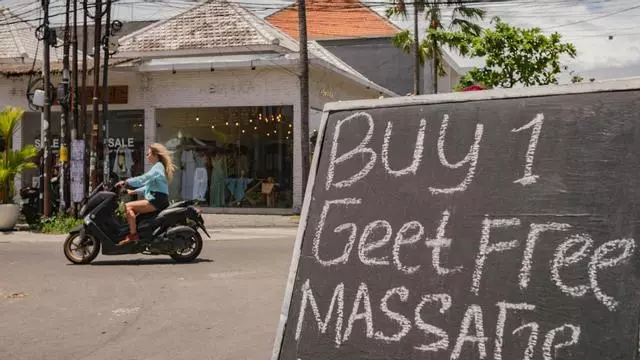 SALE
SALE
BUY 1
Geet Free
MASSAGE